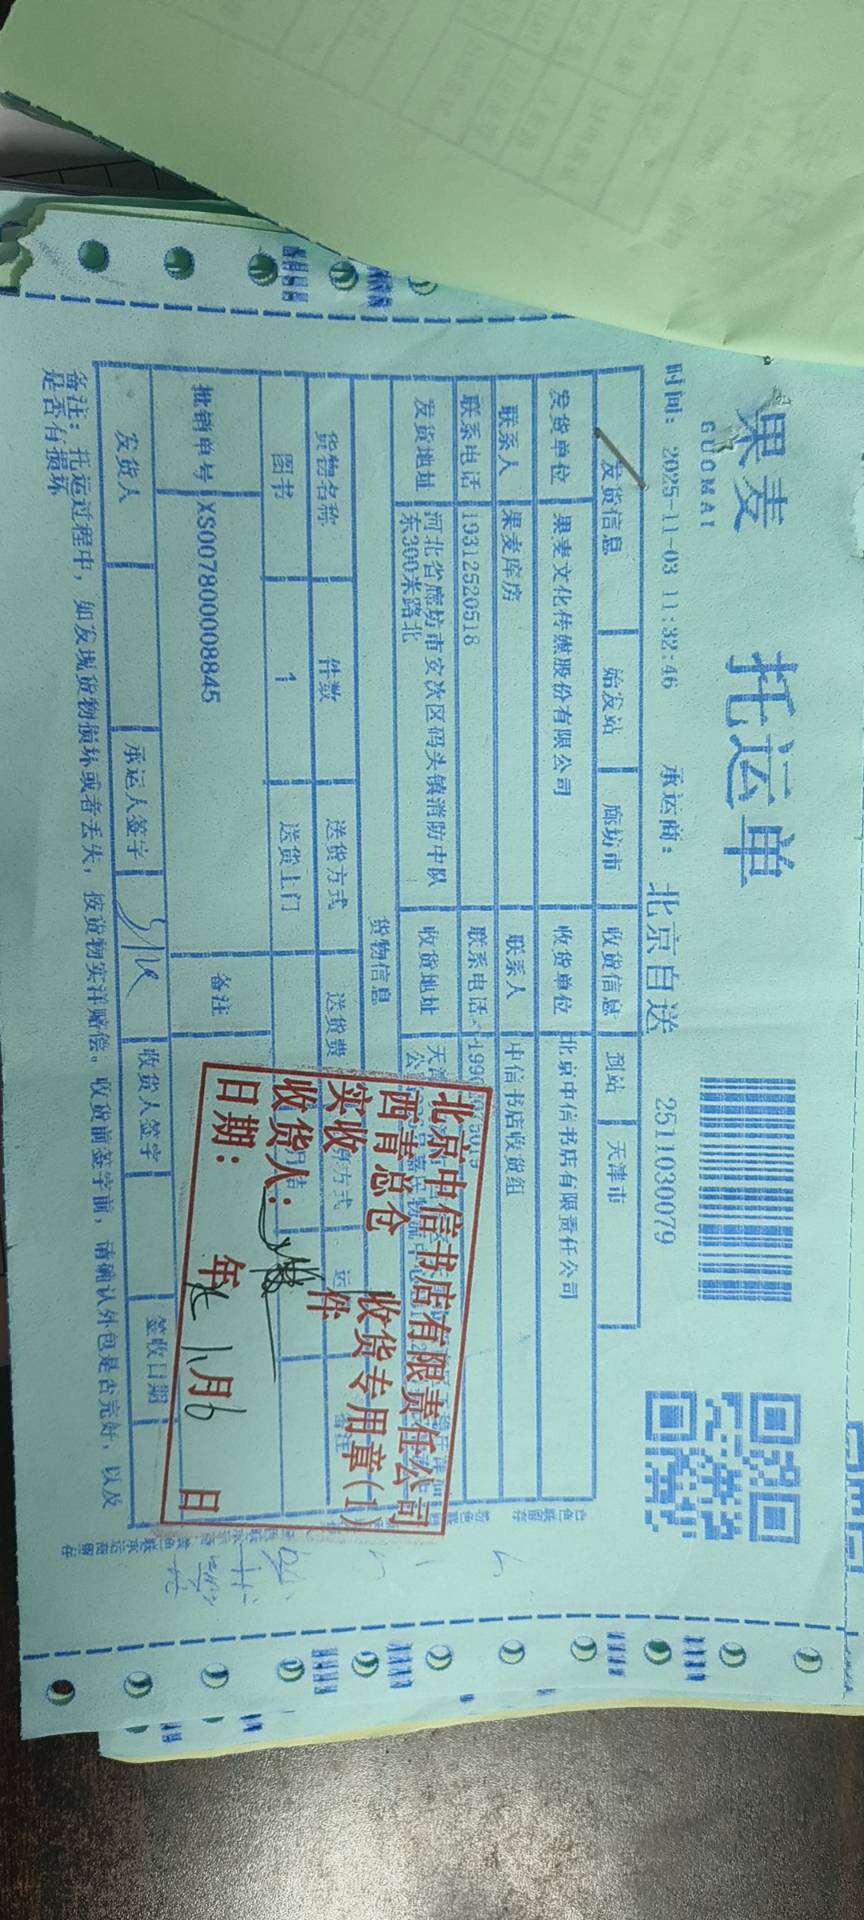 果麦
GUOMAI
托运单
2511030079
时间: 2025-11-03 11:32:46 承运商: 北京自送
发货信息 始发站 廊坊市 收货信息 到站 天津市
发货单位 果麦文化传媒股份有限公司 收货单位 北京中信书店有限责任公司
联系人 果麦库房 联系人 中信书店收货组
联系电话 19312520518 联系电话
发货地址 河北省廊坊市安次区码头镇消防中队
东300米路北 收货地址
货物信息
货物名称 件数 送货方式 送货费
图书 1 送货上门
批销单号 XS007800008845 备注
发货人 承运人签字 收货人签字 签收日期
备注: 托运过程中, 如发现货物损坏或者丢失, 按货物实洋赔偿。收货前签字前, 请确认外包是否完好, 以及
是否有损坏
北京中信书店有限责任公司
西青总仓 收货专用章(1)
实收 件
收货人:
日期: 年 11月6日